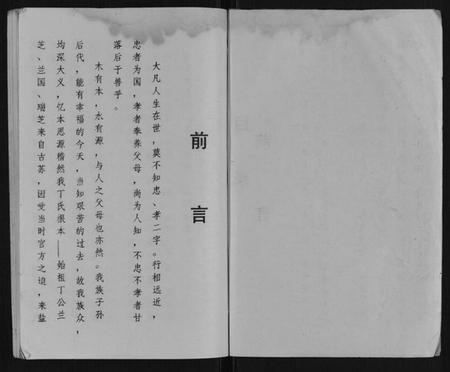 前言
大凡人生在世，莫不知忠、孝二字。行相远近，
忠者为国，孝者奉养父母，尚为人知，不忠不孝者甘
落后于兽乎。
木有本，水有源，与人之父母也亦然。我族子孙
后代，能有幸福的今天，当知艰苦的过去，故我族众，
均深大义，忆本思源楷然我丁氏根本——始祖丁公兰
芝、兰国、瑞芝来自古苏，因觉当时官方之迫，来盐